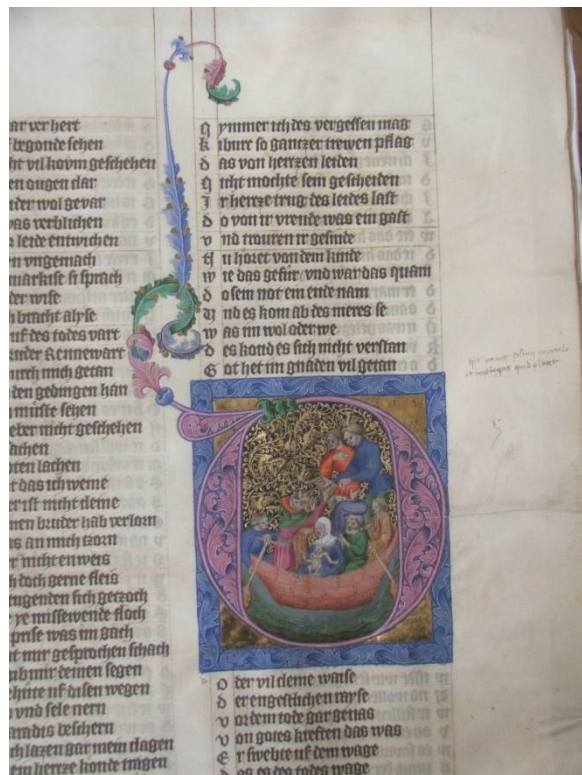 ar ver hert
begonde sehen
ht vil kovm geschehen
en ougen dar
der wol gevar
was verblichen
leide entwichen
en vngemach
markise si sprach
der wise
bracht alyse
uf des todes vart
ruder Rennewart
durch mich getan
den gedingen han
muste sehen
eber nicht geschehen
achen
oten lachen
t das ich weine
er ist nicht cleine
nen bruder hab verlorn
s an mich zorn
r nicht en weis
h doch gerne fleis
ngenden sich getzoch
r ye missewende floch
prise was im gach
t mir gesprochen schach
ab mir deinen segen
uf disen wegen
vnd sele nern
aradis beschern
h lazen gar mein clagen
em hertze konde tragen
N ymmer ich des vergessen mag
K iburc so gantzer trewen pflag
d as von hertzen leiden
N icht mochte sein gescheiden
I r hertze trug des leides last
d o von ir vreude was ein gast
v nd trouren ir gesinde
N u horet von dem kinde
w ie das gefur vnd war das quam
d o sein not ein ende nam
V nd es kom ab des meres se
w as im wol oder we
d es kond es sich nicht verstan
G ot het im gnaden vil getan
O der vil cleine waise
d er engestlichen rayse
v or dem tode gar genas
v on gotes kreften das was
E r swebte uf dem wage
d as es des todes wage